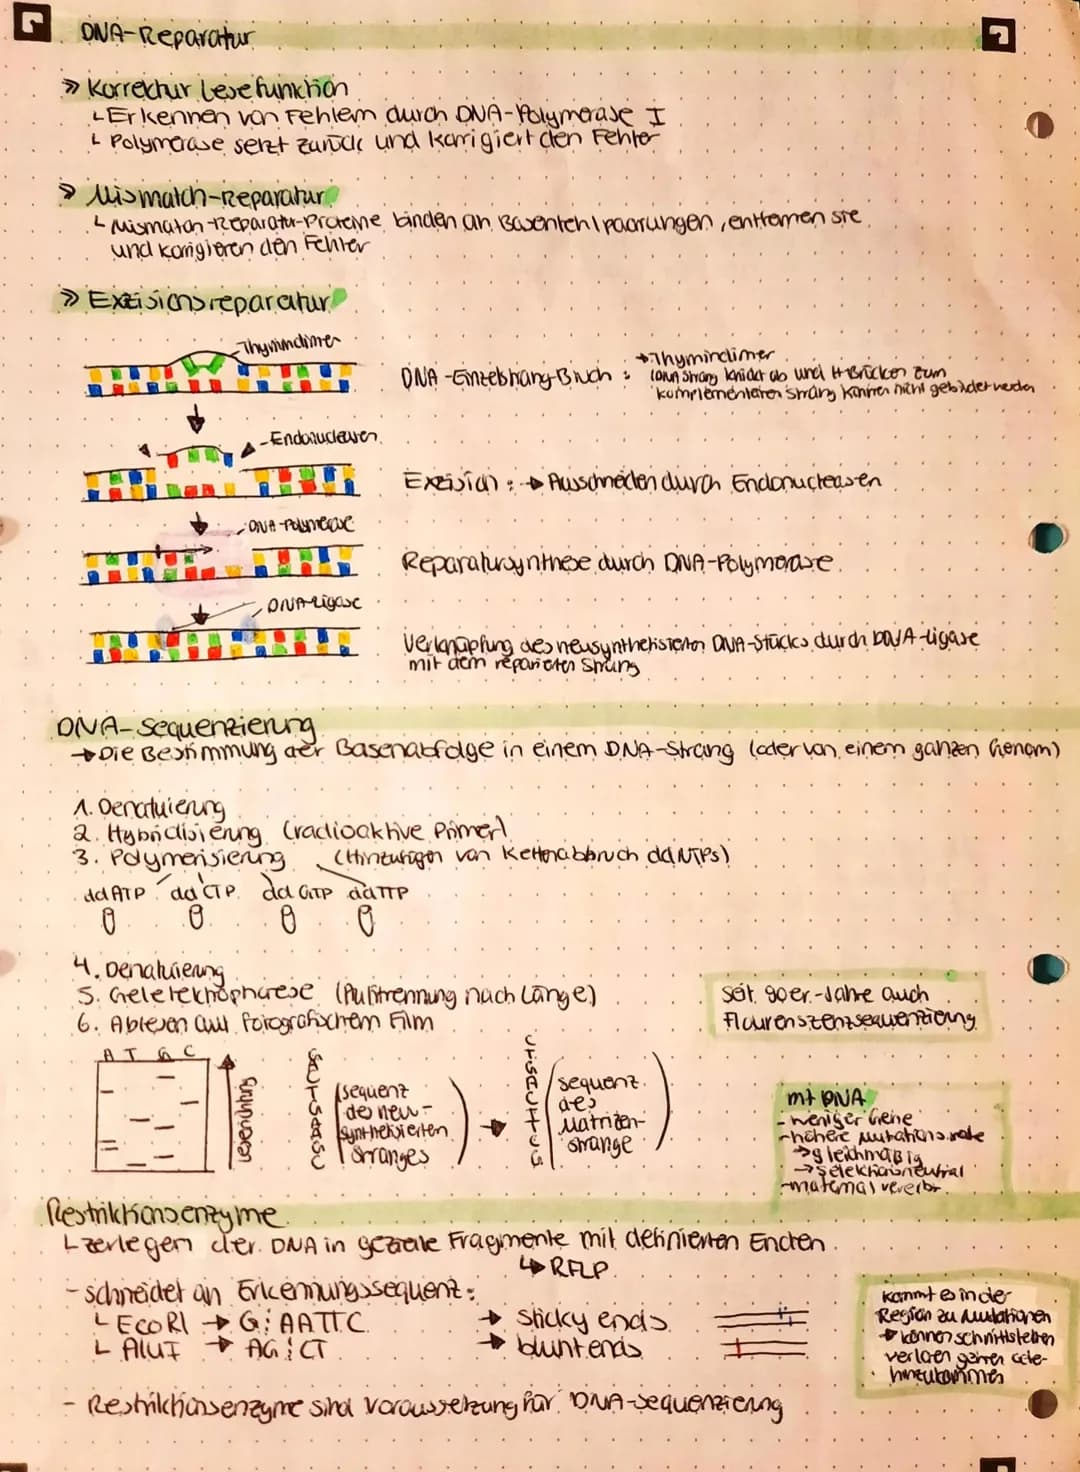 DNA-Reparatur
» Korrektur Lesefunktion
↳ Erkennen von Fehlern durch DNA-Polymerase I
↳ Polymerase setzt zurück und korrigiert den Fehler
» Mismatch-Reparatur
↳ Mismatch-Reparatur-Proteine binden an Basenfehlpaarungen, entfernen sie
und korrigieren den Fehler
» Exzisionsreparatur
Thymindimer
DNA-Einzelstrang-Bruch : → Thymindimer
(DNA Strang knickt ab und H-Brücken zum
komplementären Strang können nicht gebildet werden
Endonucleasen
Exzision : → Ausschneiden durch Endonucleasen
DNA-Polymerase
Reparatursynthese durch DNA-Polymerase
DNA-Ligase
Verknüpfung des neusynthetisierten DNA-Stücks durch DNA-Ligase
mit dem reparierten Strang
DNA-Sequenzierung
→ Die Bestimmung der Basenabfolge in einem DNA-Strang (oder von einem ganzen Genom)
1. Denatuierung
2. Hybridisierung (radioaktive Primer)
3. Polymerisierung (Hinzufügen von Kettenabbruch ddNTPs)
ddATP ddCTP ddGTP ddTTP
4. Denatuierung
5. Gelelektrophorese (Auftrennung nach Länge)
6. Ablesen auf fotografischem Film
Seit 90er-Jahre auch
Flourenszenzsequenzierung
A T G C
(sequenz
des neu-
synthetisierten
Stranges)
→
(sequenz
des
Matrizen-
strangs)
mt DNA
- weniger Gene
- höhere Mutationsrate
→ gleichmäßig
→ selektionsneutral
- maternal vererbt
Restriktionsenzyme
↳ zerlegen der DNA in gezielte Fragmente mit definierten Enden
↳ RFLP
- schneidet an Erkennungssequenz :
↳ EcoRI → G¦AATTC → sticky ends
↳ AluI → AG¦CT → blunt ends
Kommt es in der
Region zu Mutationen
→ können schnittstellen
verloren gehen oder
hinzukommen
- Restriktionsenzyme sind Voraussetzung für DNA-Sequenzierung